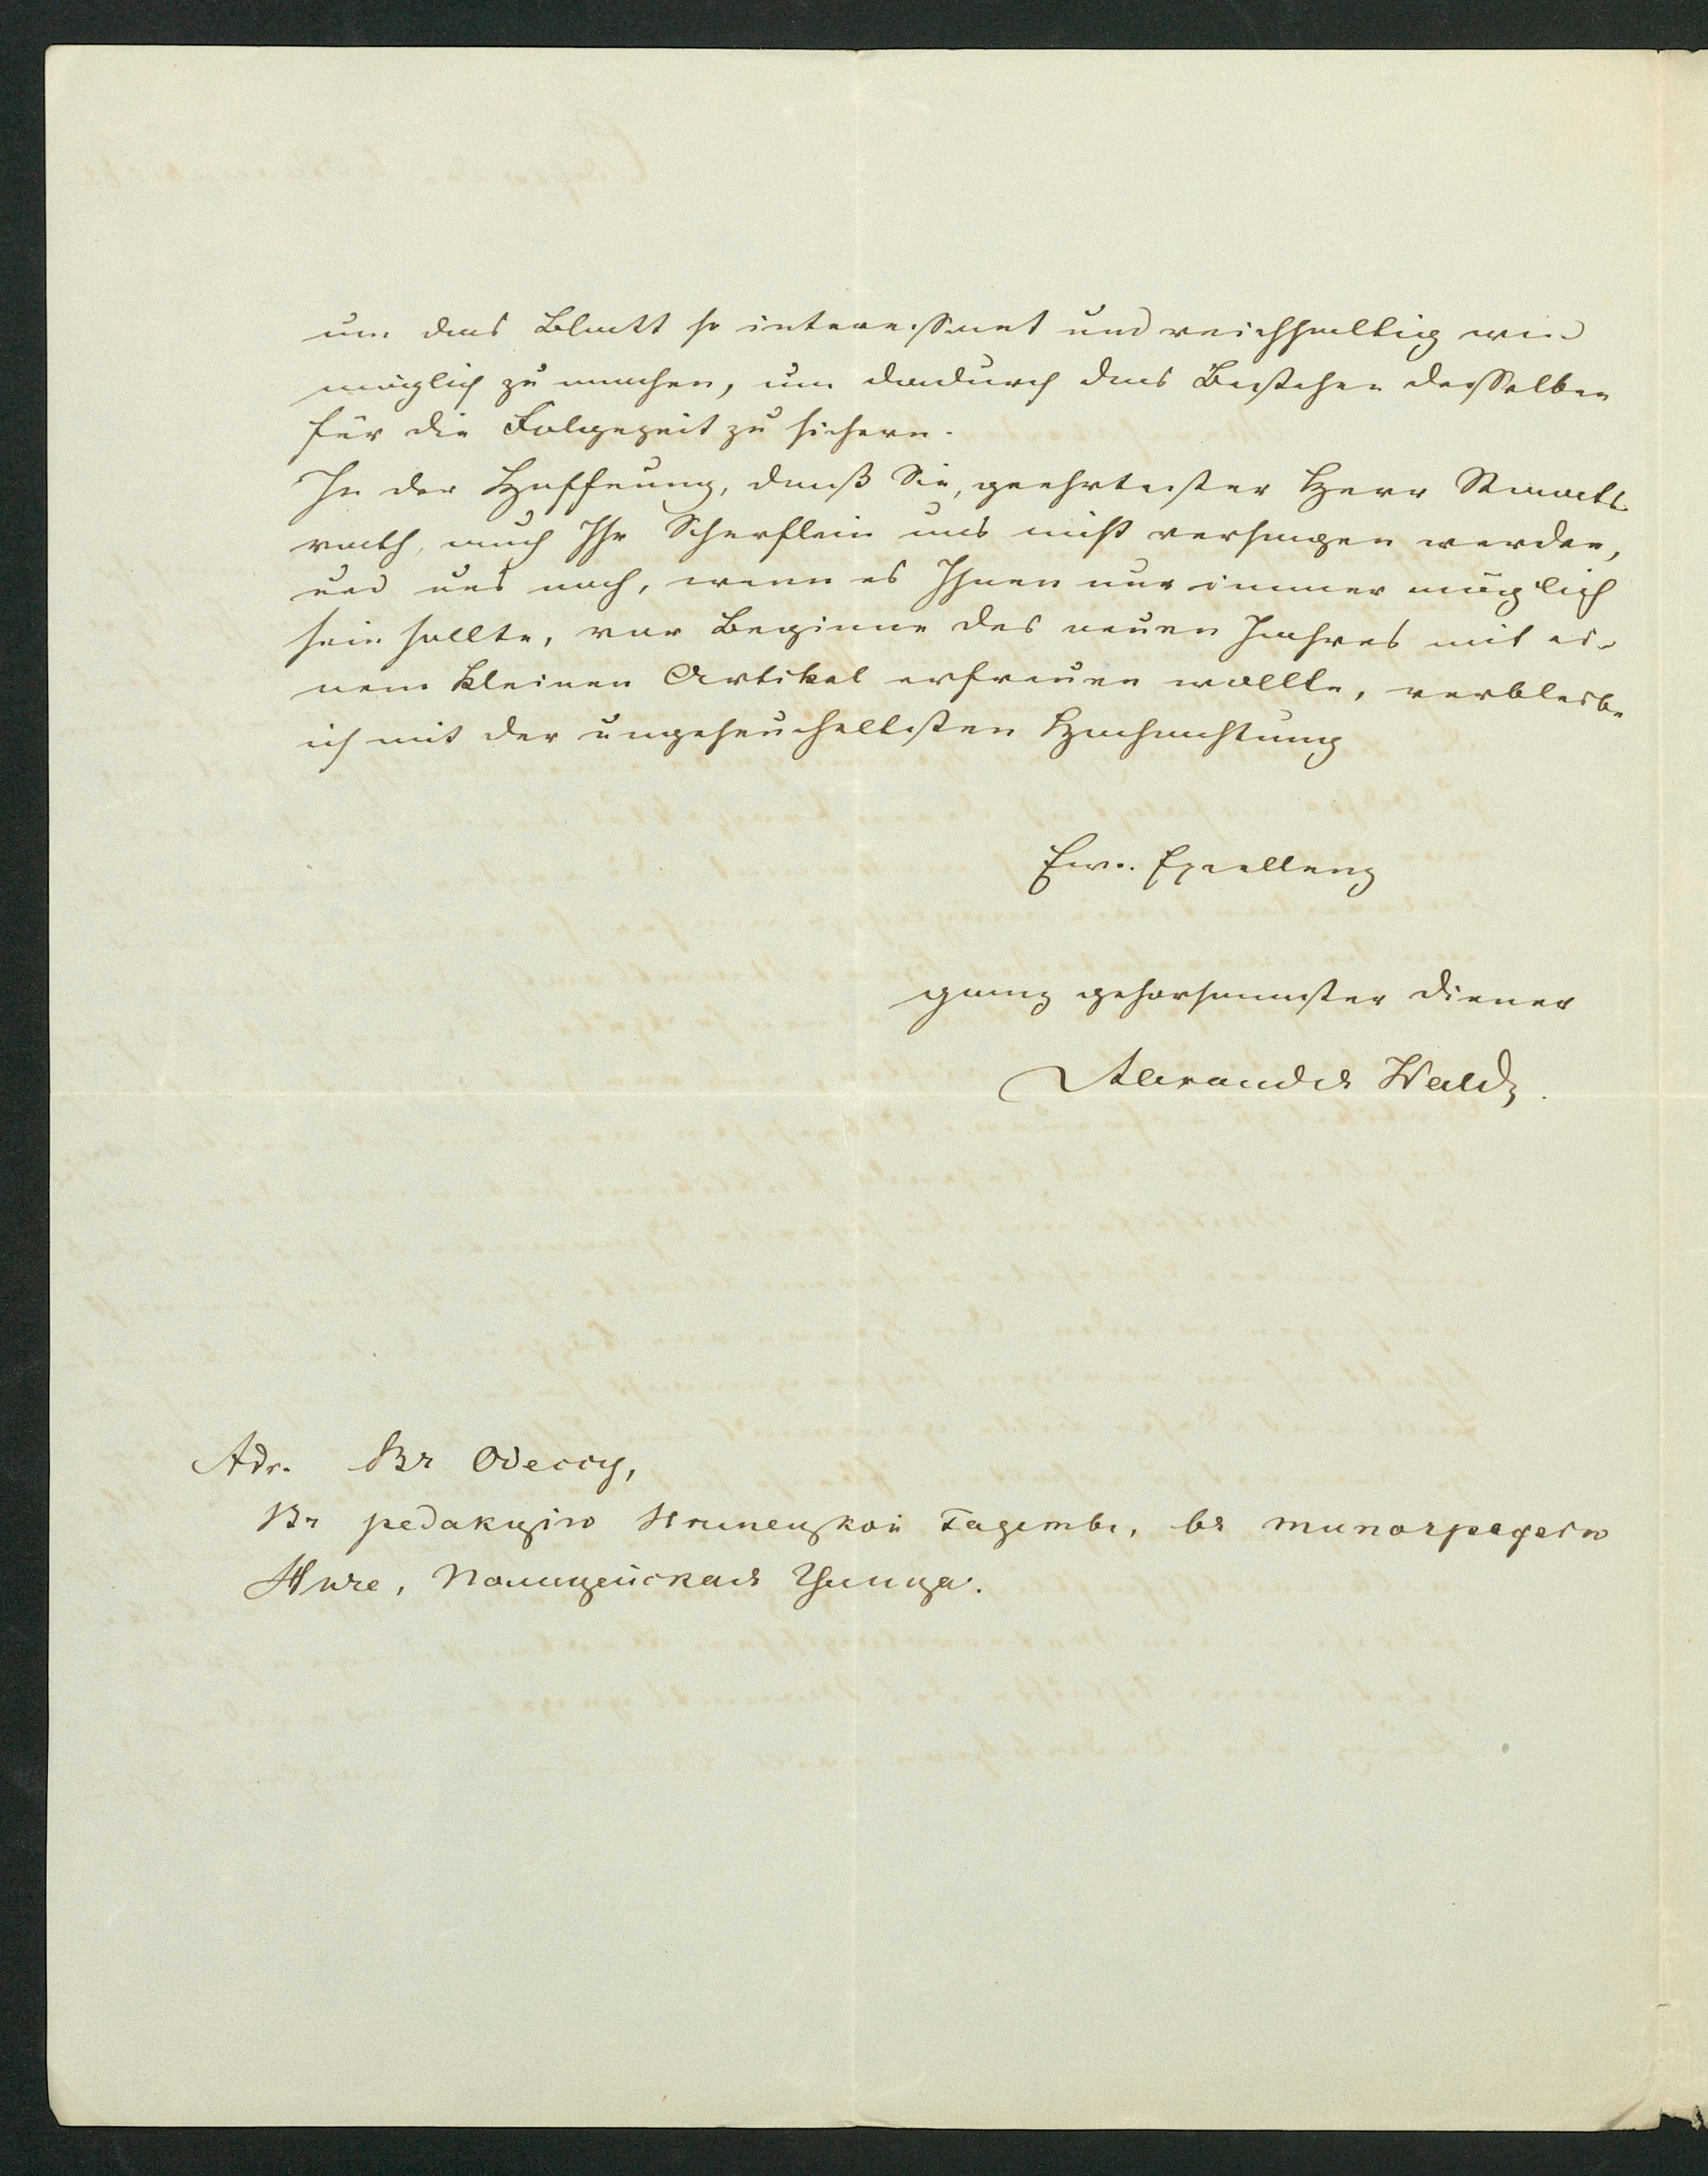 um das Blatt so interessant und reichhaltig wie
möglich zu machen, um dadurch das Bestehen desselben
für die Folgezeit zu sichern.
In der Hoffnung, daß Sie, geehrtester Herr Staats-
rath, auch Ihr Scherflein uns nicht versagen werden,
und uns noch, wenn es Ihnen nur immer möglich
sein sollte, vor Beginne des neuen Jahres mit ei-
nem kleinen Artikel erfreuen wollte, verbleibe
ich mit der ungeheucheltesten Hochachtung
Ew. Excellenz
ganz gehorsamster Diener
Alexander
Adr. Въ Одессу,
Въ редакцію Нѣмецкой Газеты, въ типографію
Ниче, Полицейская Улица.